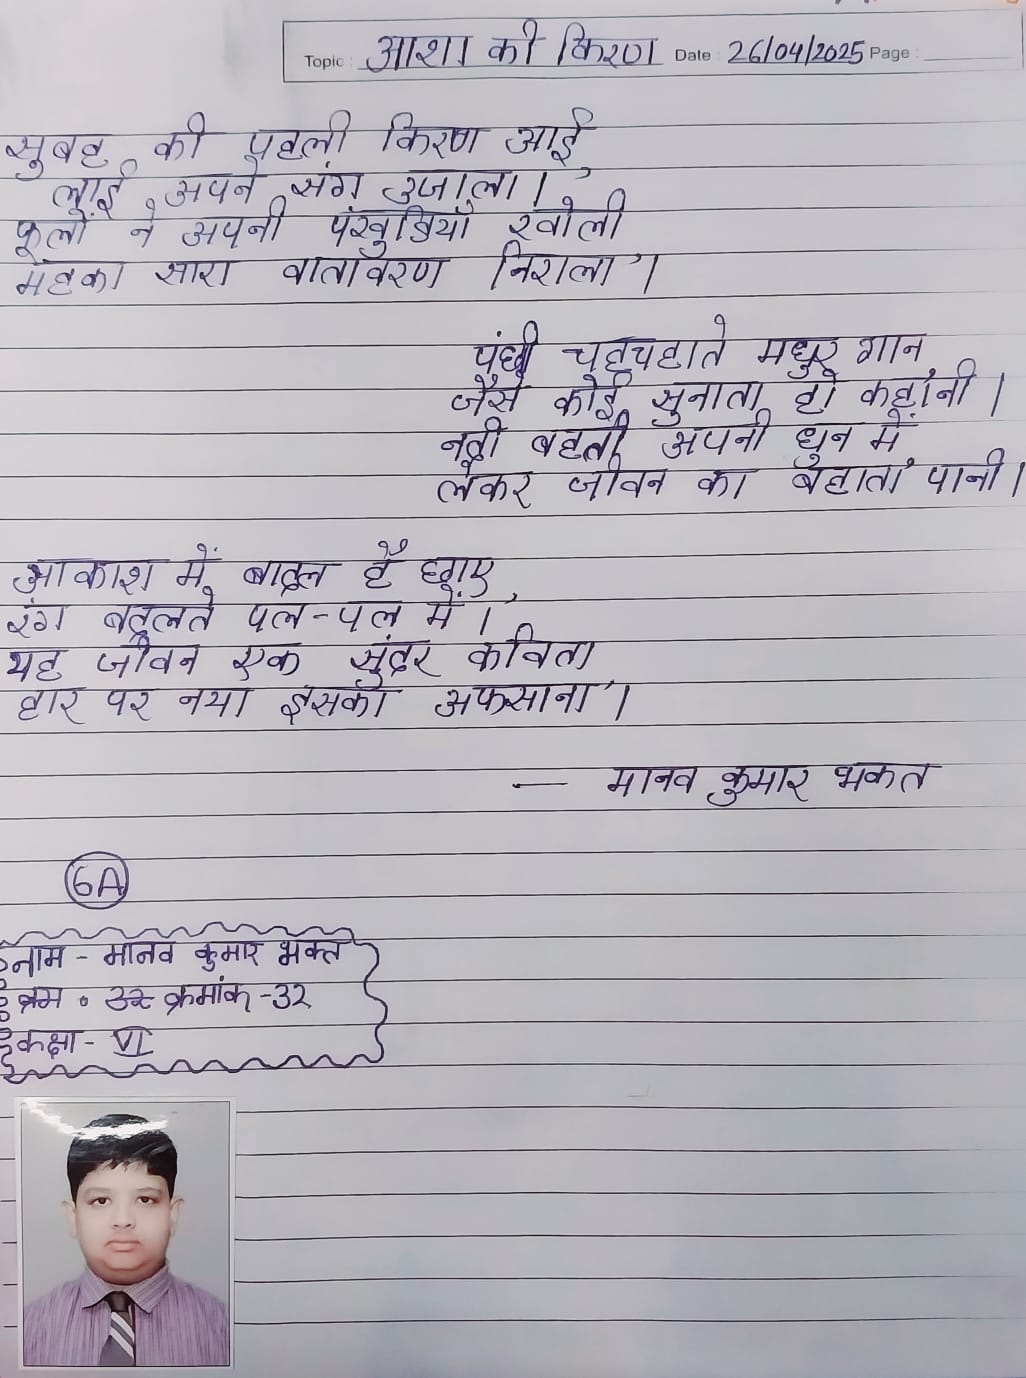 Topic : आशा की किरण Date : 26/04/2025 Page :
सुबह की पहली किरण आई,
लाई अपने संग उजाला।
फूलों ने अपनी पंखुडियाँ खोली
महका सारा वातावरण निराला।
पंछी चहचहाते मधुर गान,
जैसे कोई सुनाता हो कहानी।
नदी बहती अपनी धुन में,
लेकर जीवन का बहाता पानी।
आकाश में बादल हैं छाए,
रंग बदलते पल-पल में।
यह जीवन एक सुंदर कविता
हार पर नया इसका अफसाना।
— मानव कुमार भकत
6A
नाम - मानव कुमार भक्त
क्रमांक - 32
कक्षा - VI